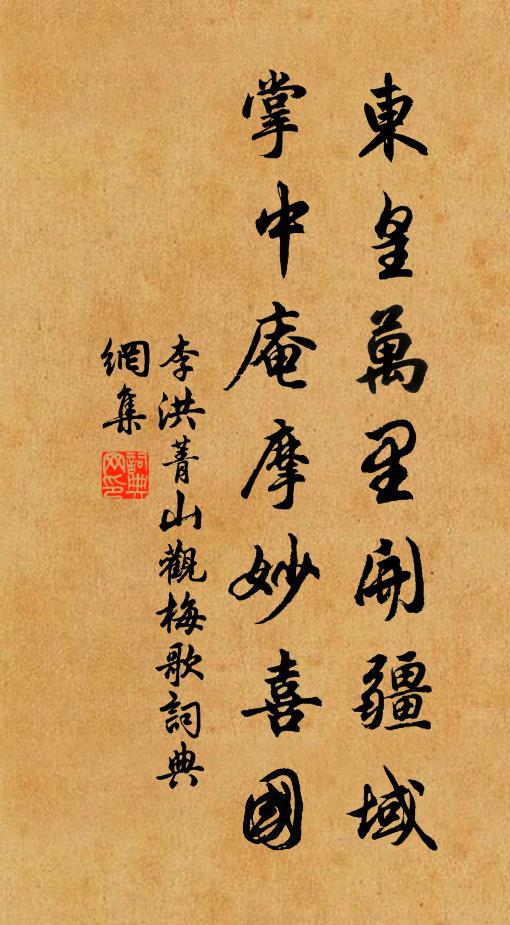 東皇萬里開疆域
掌中庵摩妙喜國
李洪菁山觀梅歌詞典
網集
詞典
網印